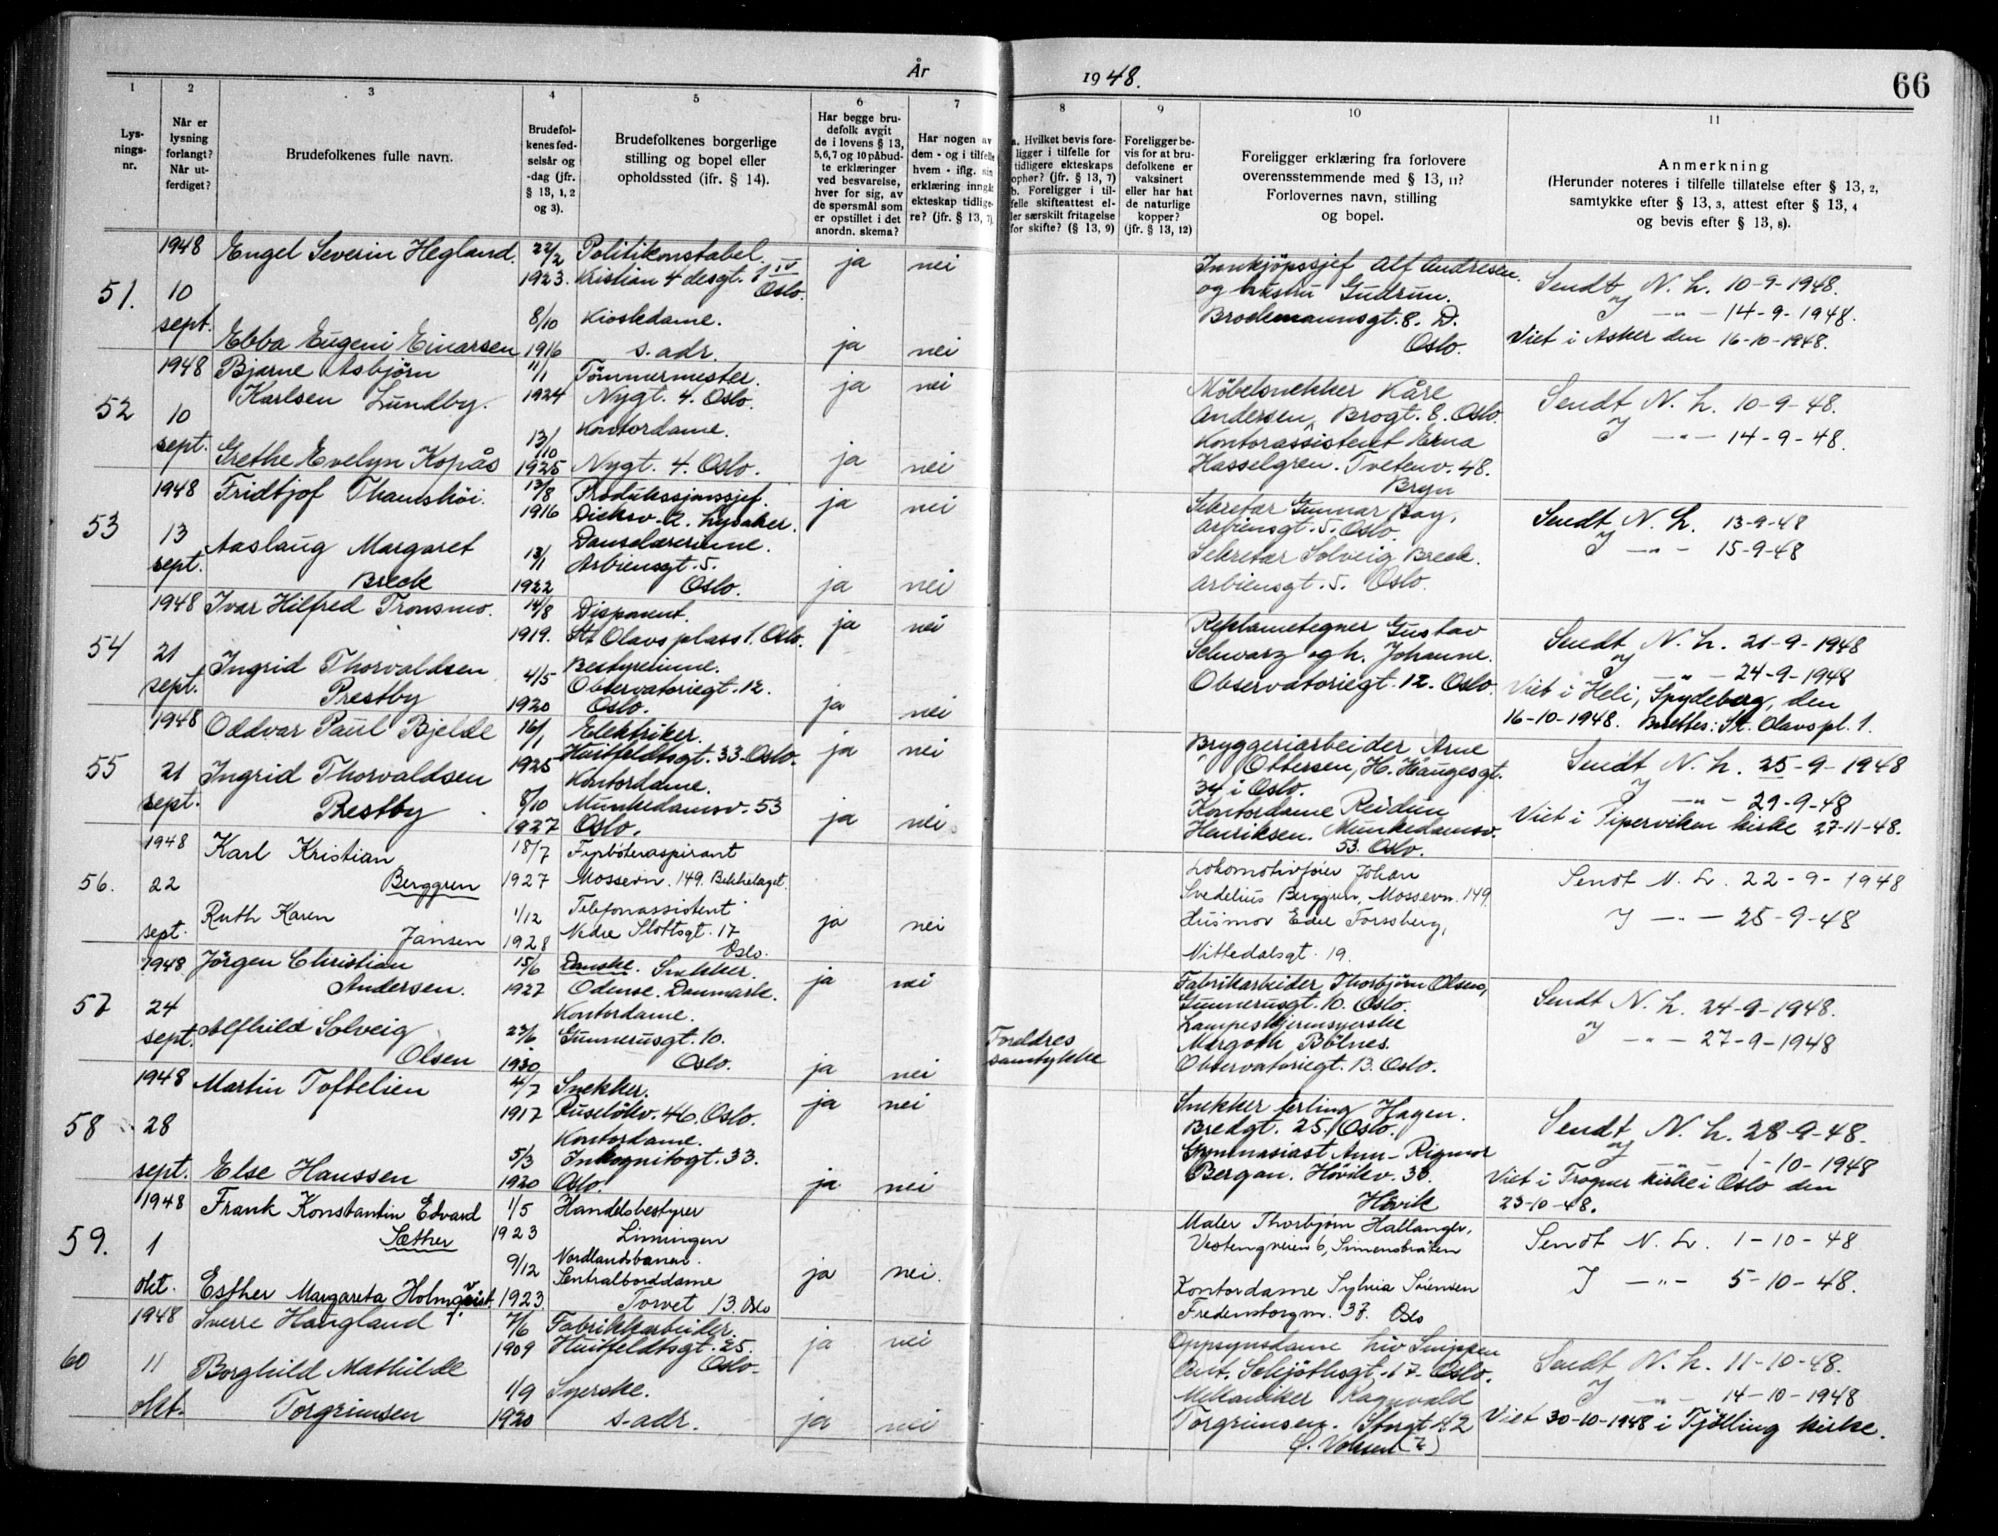 År 1948.
66
1 2 3 4 5 6 7 8 9 10 11
Lys-
nings-
nr.
Når er
lysning
forlangt?
Når ut-
ferdiget?
Brudefolkenes fulle navn.
Brudefol-
kenes fød-
selsår og
-dag (jfr.
§ 13, 1, 2
og 3).
Brudefolkenes borgerlige
stilling og bopel eller
opholdssted (ifr. § 14).
Har begge bru-
defolk avgit
de i lovens § 13,
5,6,7 og 10 påbud-
te erklæringer
ved besvarelse,
hver for sig, av
de spørsmål som
er opstillet i det
anordn. skema?
Har nogen av
dem - og i tilfelle
hvem - iflg. sin
erklæring inngåt
ekteskap tidlige-
re? (jfr. § 13, 7).
a. Hvilket bevis fore-
ligger i tilfelle for
tidligere ekteskaps
ophør? (jfr. § 13, 7)
b. Foreligger i til-
felle skifteattest el-
ler særskilt fritagelse
for skifte? (§ 13, 9)
Foreligger be-
vis for at bru-
defolkene er
vaksinert
eller har hat
de naturlige
kopper?
(jfr. § 13, 12)
Foreligger erklæring fra forlovere
overensstemmende med § 13, 11?
Forlovernes navn, stilling
og bopel.
Anmerkning
(Herunder noteres i tilfelle tillatelse efter § 13, 2,
samtykke efter § 13, 3, attest efter § 13, 4
og bevis efter § 13, 8).
51.
1948
10
sept.
Engel Severin Hegland.
22/2
1923.
Politikonstabel.
Kristian 4 desgt. 1 IV
Oslo.
ja nei
Ebba Eugeni Einarsen
8/10
1916
Kioskdame.
s. adr.
ja nei
Innkjøpssjef Alf Andresen.
og hustru Gudrun.
Brochmannsgt. 8. D.
Oslo.
Sendt N. L. 10-9-1948.
og — " — 14-9-1948.
Viet i Asker den 16-10-1948.
52
1948
10
sept.
Bjarne Asbjørn
Karlsen Lundby.
11/1
1924
Tømmermester.
Nygt. 4. Oslo.
ja nei
Grethe Evelyn Kopås
13/10
1925
Kontordame.
Nygt. 4. Oslo.
ja nei
Møbelsnekker Kåre
Andersen, Brogt. 8. Oslo.
Kontorassistent Erna
Hasselgren. Tvetenv. 48.
Bryn
Sendt N. L. 10-9-48.
J — " — 14-9-48.
53
1948
13
sept.
Fridtjof Thamshøi.
13/8
1916
Produksjonssjef.
Dicksv. 2. Lysaker.
ja nei
Aaslaug Margaret
Breck
13/1
1922
Danselærerinne.
Arbiensgt. 5.
Oslo.
ja nei
Sekretær Gunnar Bay,
Arbiensgt. 5. Oslo.
Sekretær Solveig Breck.
Arbiensgt. 5. Oslo.
Sendt N. L. 13-9-48
J — " — 15-9-48
54
1948
21
sept.
Ivar Hilfred Tronsmo.
14/8
1919.
Disponent.
St. Olavs plass 1. Oslo.
ja nei
Ingrid Thorvaldsen
Prestby
4/5
1920
Bestyrerinne.
Observatoriegt. 12.
Oslo.
ja nei
Reklametegner Gustav
Schwarz og h. Johanne.
Observatoriegt. 12. Oslo.
Sendt N. L. 21-9-1948
og — " — 24-9-1948
Viet i Heli, Spydeberg, den
16-10-1948. Bosettes: St. Olavspl. 1.
55
1948
21
sept.
Oddvar Paul Bjelde
16/1
1925
Elektriker.
Huitfeldtsgt. 33. Oslo.
ja nei
Ingrid Thorvaldsen
Prestby
8/10
1927
Kontordame.
Munkedamsv. 53
Oslo.
ja nei.
Bryggeriarbeider Arne
Ottersen, H. Haugesgt.
34 i Oslo.
Kontordame Reidun
Henriksen. Munkedamsv.
53. Oslo.
Sendt N. L. 25-9-1948
J — " — 29-9-48
Viet i Pipervikens kirke 27-11-48.
56.
1948
22
sept.
Karl Kristian
Berggren
18/7
1927
Fyrbøteraspirant
Mossevn. 149. Bekkelaget.
Ruth Karen
Jansen
1/12
1928
Telefonassistent
Nedre Slottsgt. 17
Oslo.
ja nei
Lokomotivfører Johan
Svedelius Berggren, Mossevn. 149.
Husmor Edel Forssberg,
Nittedalsgt. 19.
Sendt N. L. 22-9-1948
J — " — 25-9-48
57
1948
24
sept.
Jörgen Christian
Andersen.
15/6
1927
Danske. Snekker.
Odense. Danmark.
ja nei
Alfhild Solveig
Olsen
23/6
1930
Kontordame.
Gunnerusgt. 10.
Oslo.
ja nei
Foreldres
samtykke
Fabrikarbeider Thorbjørn Olsen,
Gunnerusgt. 10. Oslo.
Lampeskjermsyerske
Margoth Bölnes.
Observatoriegt. 13. Oslo.
Sendt N. L. 24-9-1948.
J — " — 27-9-1948
58
1948
28
sept.
Martin Toftelien
4/7
1917
Snekker.
Ruseløkv. 46. Oslo.
ja nei
Else Hanssen
5/3
1920
Kontordame.
Inkognitogt. 33.
Oslo.
ja nei
Snekker Erling Hagen.
Bredgt. 25. Oslo.
Gymnasiast Ann-Rigmor
Bergan. Høvikv. 33.
Høvik
Sendt N. L. 28-9-48.
og 1-10-1948
Viet i Frogner kirke i Oslo den
23-10-48.
59.
1948
1
okt.
Frank Konstantin Edvard
Sæther
1/5
1923
Handelsbestyrer
Limingen
Nordlandsbanen.
Esther Margareta Holmqvist
9/12
1923
Sentralborddame
Torvet 13. Oslo
ja nei.
Maler Thorbjørn Hallanger,
Vestengveien 6, Simensbråten
Kontordame Sylvia Sörensen
Fredensborgvn. 37. Oslo
Sendt N. L. 1-10-48
J — " — 5-10-48.
60
1948
11
okt.
Sverre Haugland
7/6
1909
Fabrikkarbeider.
Huitfeldtsgt. 25.
Oslo.
ja nei
Borghild Mathilde
Torgrimsen
1/9
1920
Syerske.
s. adr.
ja nei
Oppsynsdame Liv Snippen
Ant. Schjøthsgt. 17. Oslo.
Mekaniker Ragnvald
Torgrimsen. Storgt 42
Sendt N. L. 11-10-48.
J — " — 14-10-1948
Viet 30-10-1948 i Tjölling kirke.